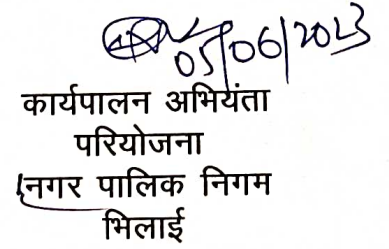 05/06/2023
कार्यपालन अभियंता
परियोजना
नगर पालिक निगम
भिलाई